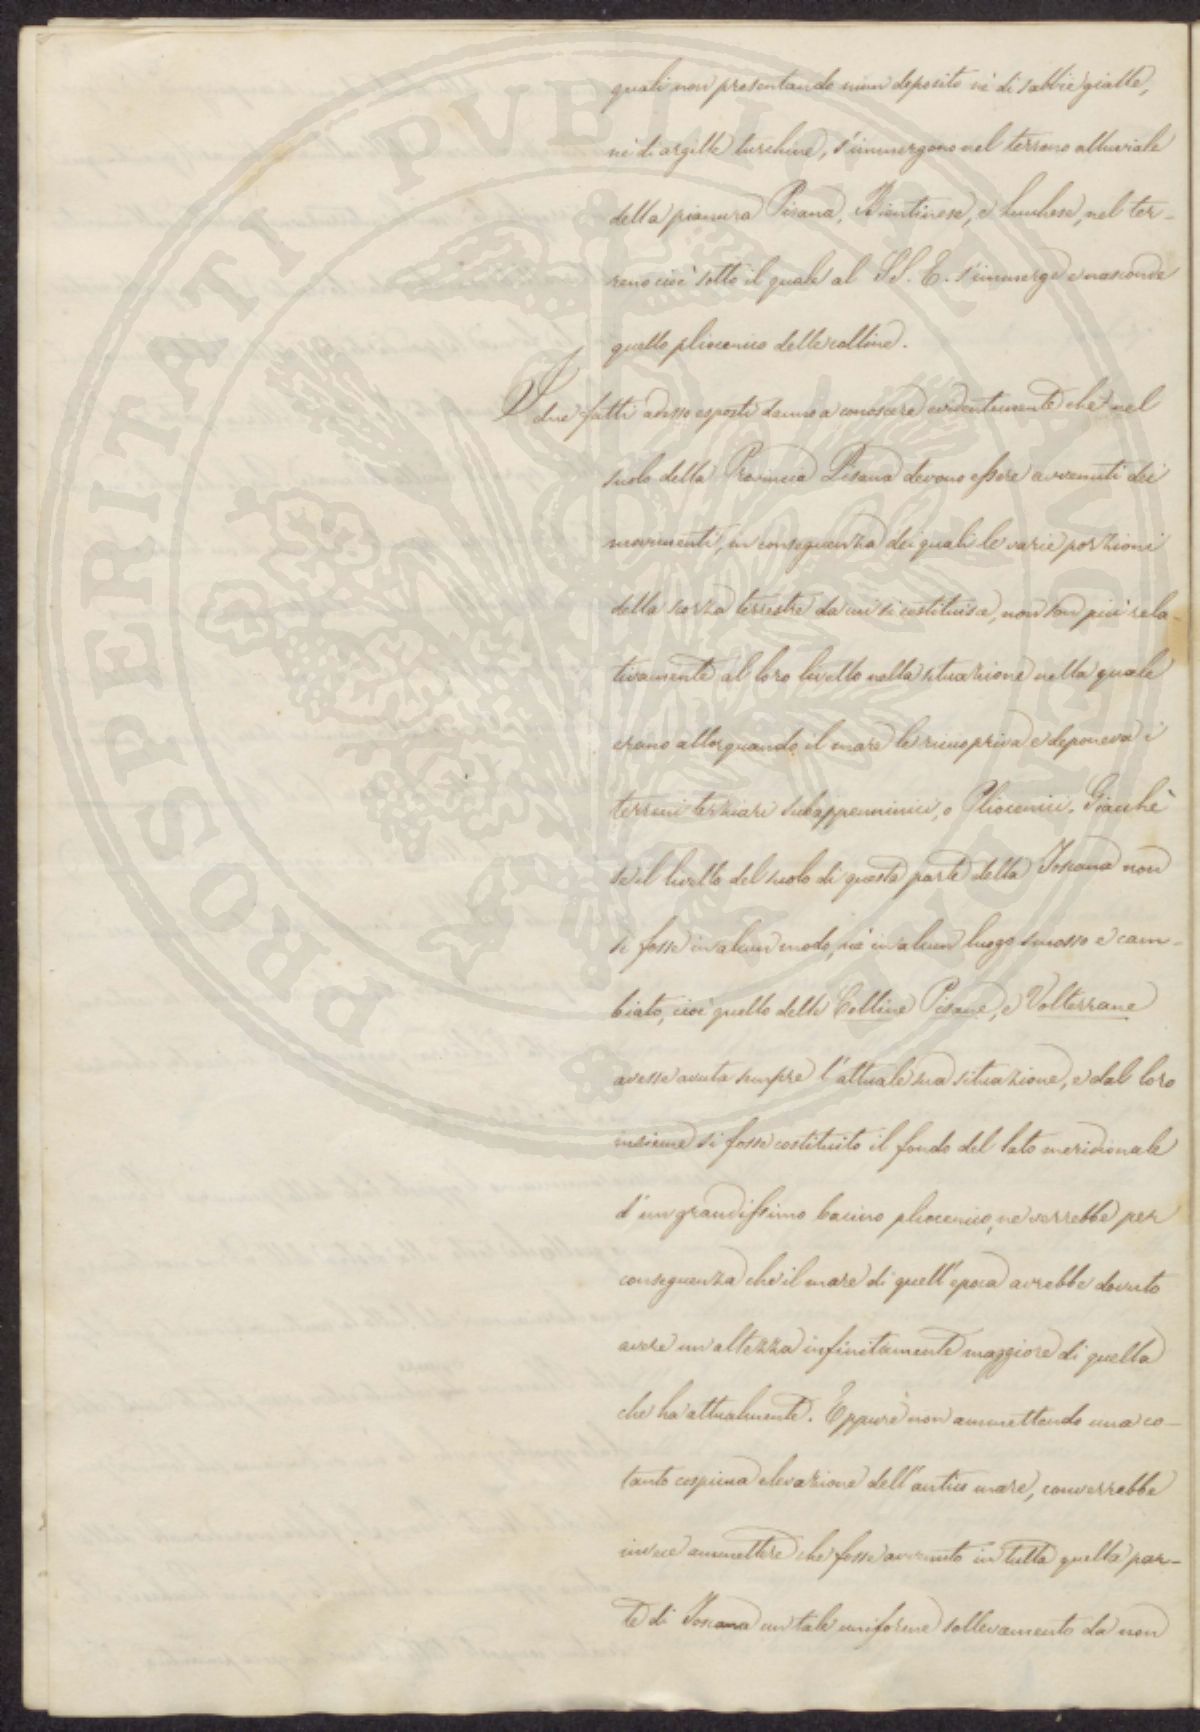 quali non presentando niun deposito nè di sabbie gialle,
nè di argille turchine, s'immergono nel terreno alluviale
della pianura Pisana, Bientinese, e Lucchese, nel ter-
reno cioè sotto il quale al S.S.E. s'immerge e nasconde
quello pliocenico delle colline.
I due fatti adesso esposti danno a conoscere evidentemente che nel
suolo della Provincia Pisana devono essere avvenuti dei
movimenti, in conseguenza dei quali le varie porzioni
della scorza terrestre da cui si costituisce, non son più rela-
tivamente al loro livello nella situazione nella quale
erano allorquando il mare le ricuopriva e deponeva i
terreni terziari subappenninici, o Pliocenici. Giacchè
se il livello del suolo di questa parte della Toscana non
si fosse in alcun modo, nè in alcun luogo smosso e cam-
biato, cioè quello delle Colline Pisane, e Volterrane
avesse avuta sempre l'attuale sua situazione, e dal loro
insieme si fosse costituito il fondo del lato meridionale
d'un grandissimo bacino pliocenico, ne verrebbe per
conseguenza che il mare di quell'epoca avrebbe dovuto
avere un altezza infinitamente maggiore di quella
che ha attualmente. Eppure non ammettendo una co-
tanto cospicua elevazione dell'antico mare, converrebbe
invece ammettere che fosse avvenuto in tutta quella par-
te di Toscana un tale uniforme sollevamento da non
PROSPERITATI PUBLICAE AUGENDAE